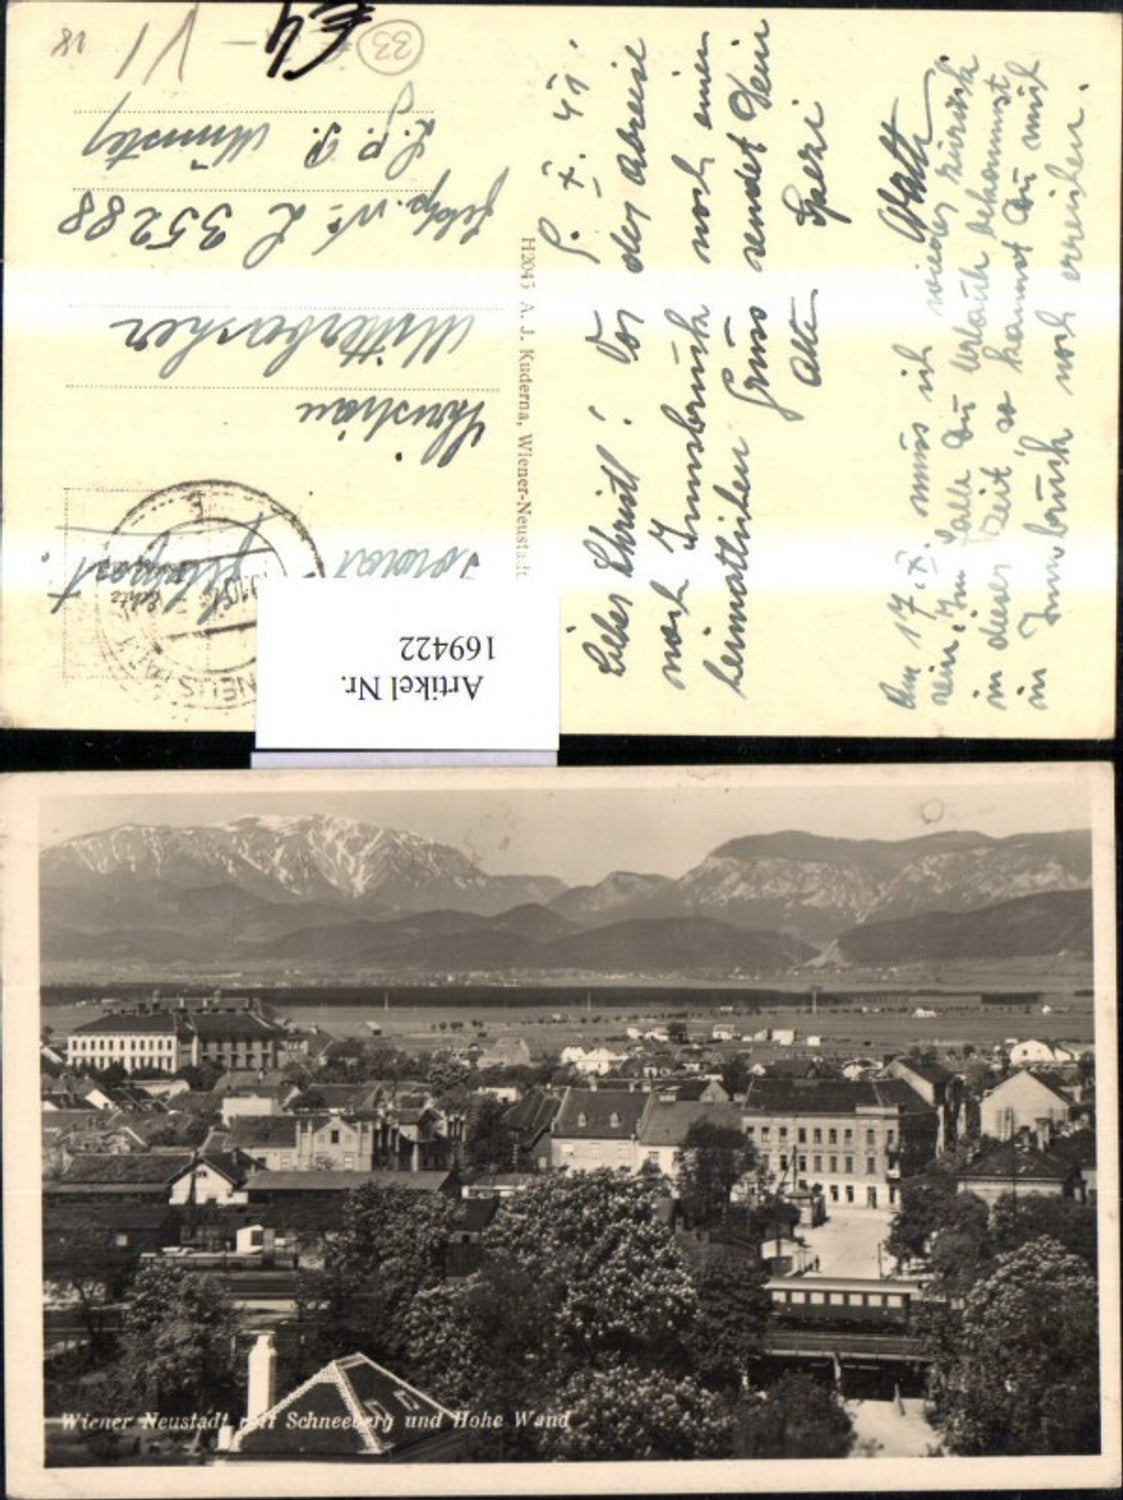 8. X. 41.
Lieber Christl! Vor der Abreise
nach Innsbruck noch einen
heimatlichen Gruss sendet Dein
alter Spezi
Am 17. X. muss ich wieder zurück
sein. Im Falle Du Urlaub bekommst
in dieser Zeit, so kannst Du mich
in Innsbruck noch erreichen.
H2045 A. J. Kuderna, Wiener-Neustadt
Feldpost
Christian
Mitterbacher
Feldp. Nr. L 35288
L.G.P.
33
18
VI
€4
Artikel Nr.
169422
Wiener Neustadt mit Schneeberg und Hohe Wand